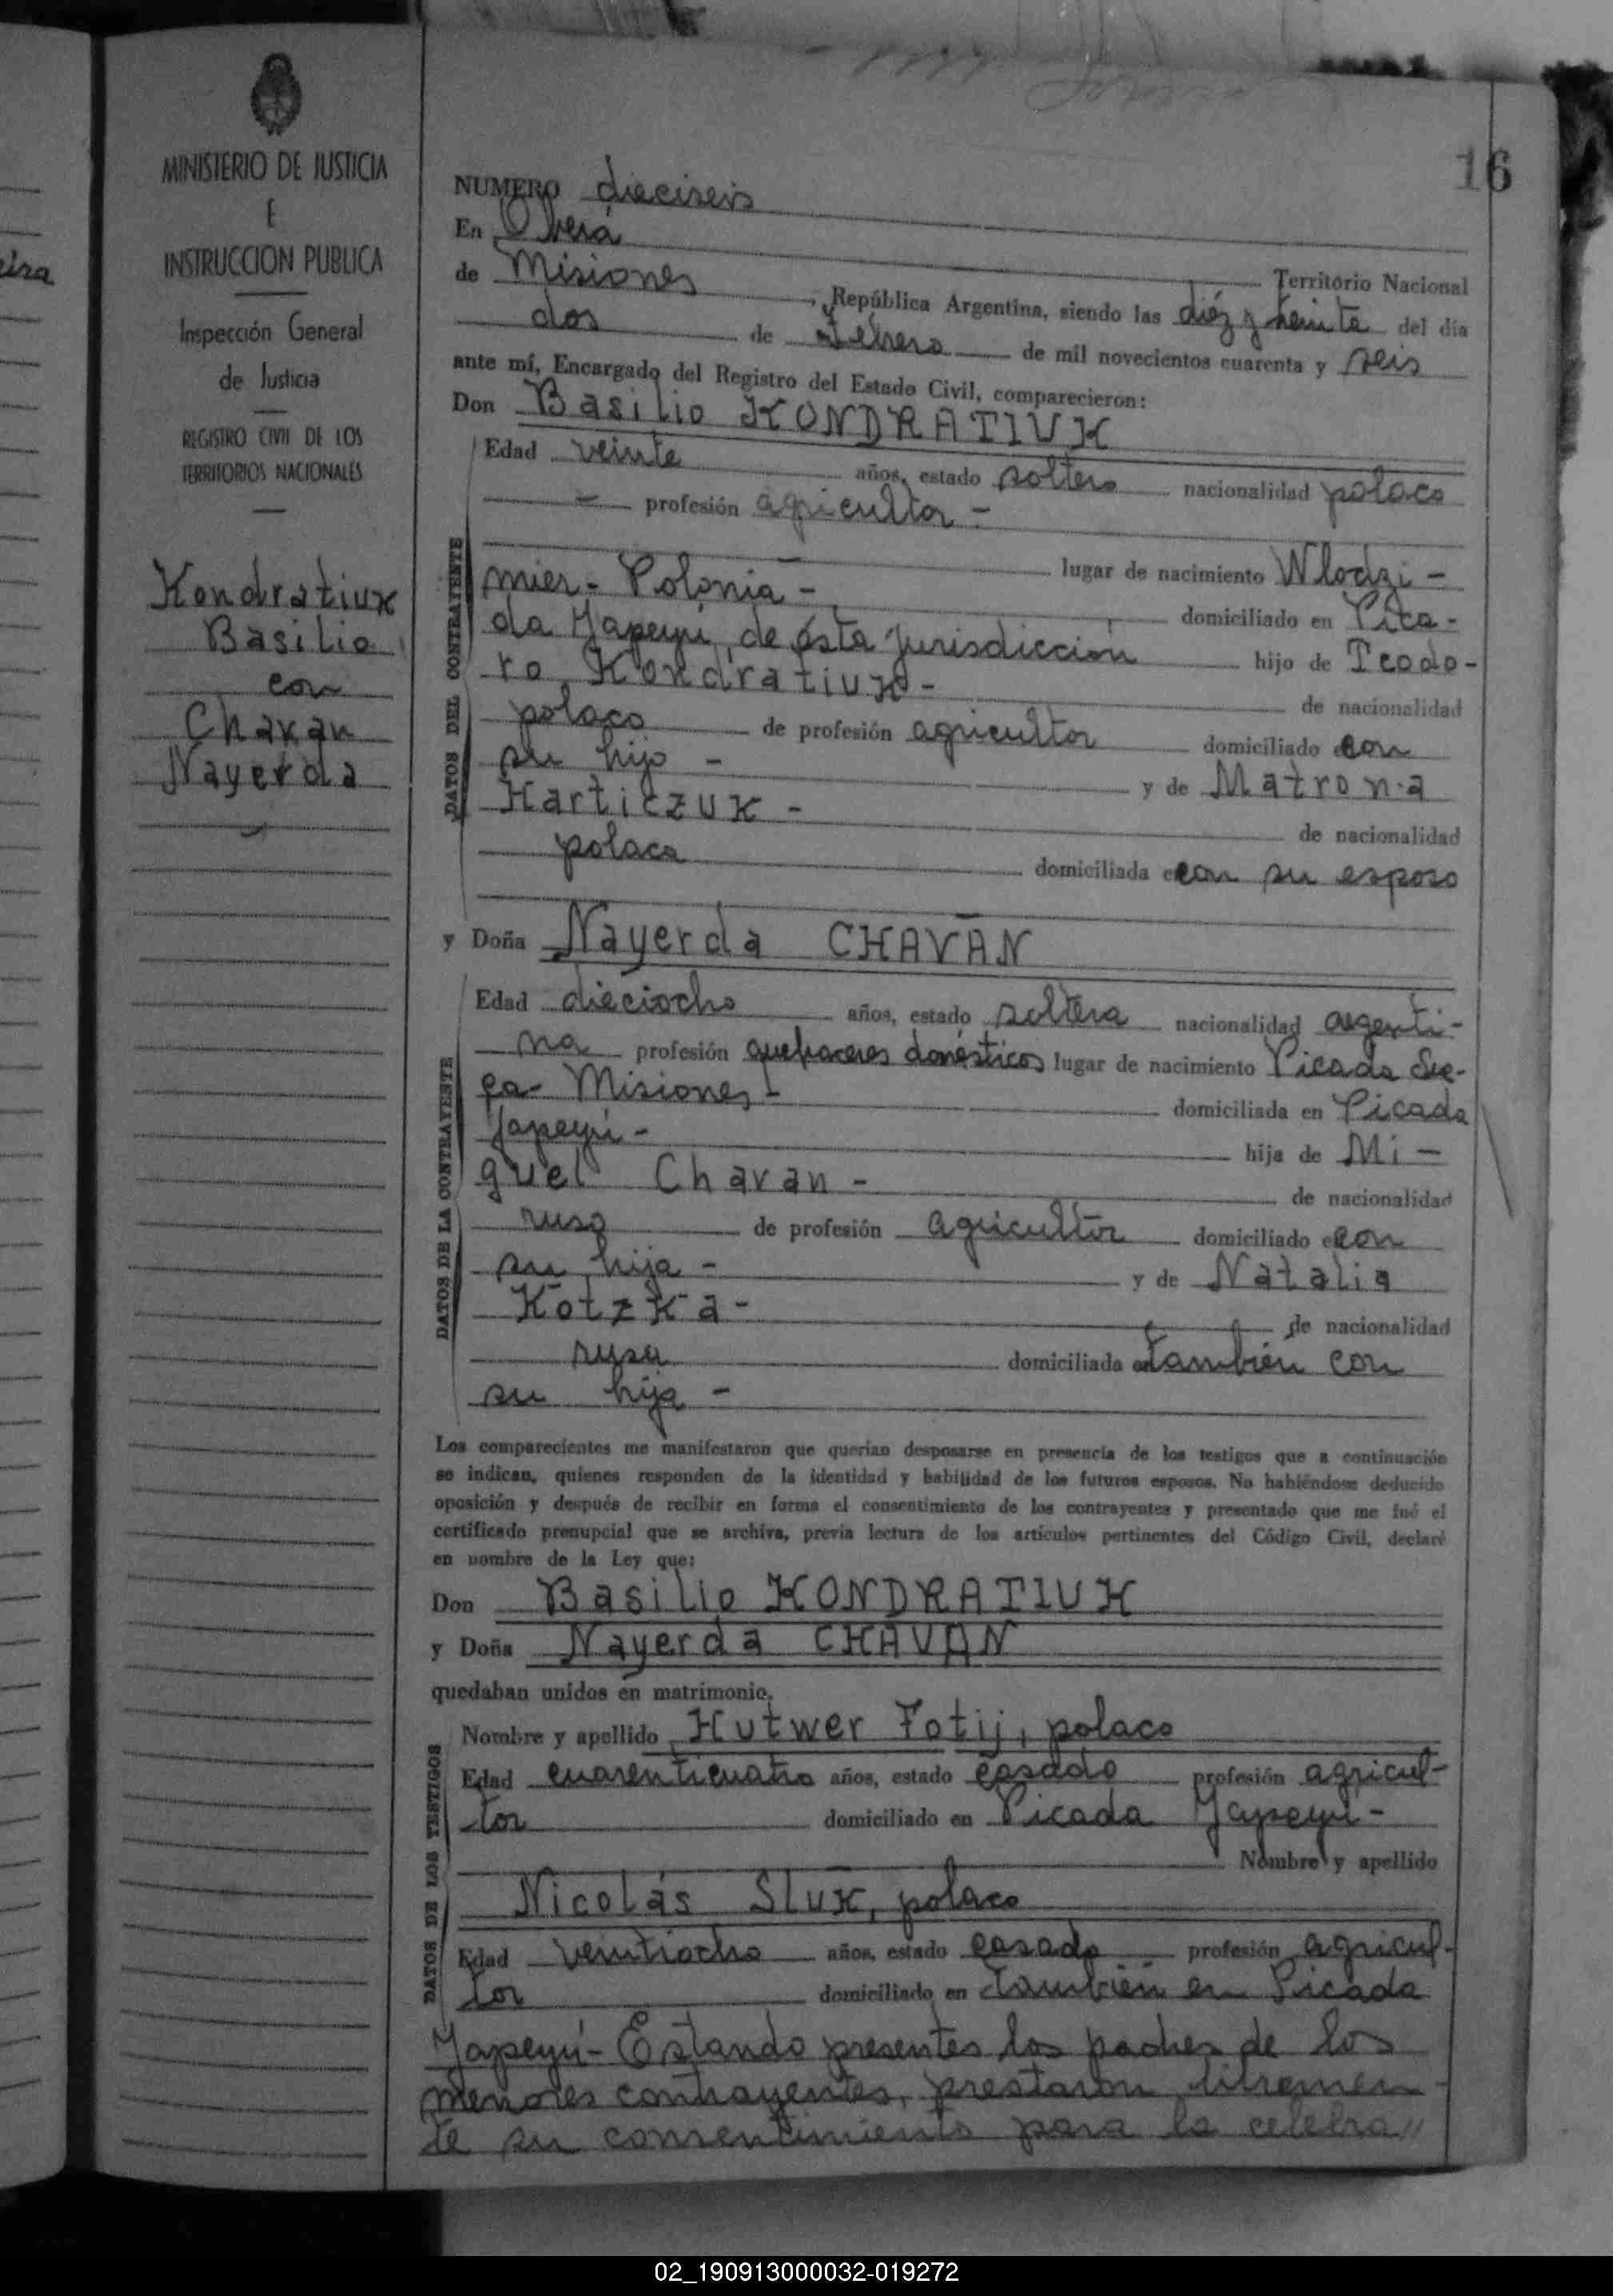 16
MINISTERIO DE JUSTICIA
E
INSTRUCCION PUBLICA
Inspección General
de Justicia
REGISTRO CIVIL DE LOS
TERRITORIOS NACIONALES
Kondratiuk
Basilio
con
Chavan
Nayerda
NUMERO dieciseis
En Oberá
Territorio Nacional
de Misiones, República Argentina, siendo las diéz y treinta del día
dos de febrero de mil novecientos cuarenta y seis
ante mí, Encargado del Registro del Estado Civil, comparecieron:
Don Basilio KONDRATIUK
DATOS DEL CONTRAYENTE
Edad veinte años, estado soltero nacionalidad polaco
- profesión agricultor -
lugar de nacimiento Wlodzi-
mier - Polonia - domiciliado en Pica-
da Yapeyú, de ésta jurisdicción hijo de Teodo-
ro Kondratiuk - de nacionalidad
polaco de profesión agricultor domiciliado con
su hijo - y de Matrona
Harticzuk - de nacionalidad
polaca domiciliada con su esposo
y Doña Nayerda CHAVAN
DATOS DE LA CONTRAYENTE
Edad dieciocho años, estado soltera nacionalidad argenti-
na profesión quehaceres domésticos lugar de nacimiento Picada Sue-
ca - Misiones - domiciliada en Picada
Yapeyú - hija de Mi-
guel Chavan - de nacionalidad
ruso de profesión agricultor domiciliado con
su hija - y de Natalia
Kotzka - de nacionalidad
rusa domiciliada también con
su hija -
Los comparecientes me manifestaron que querían desposarse en presencia de los testigos que a continuación
se indican, quienes responden de la identidad y habilidad de los futuros esposos. No habiéndose deducido
oposición y después de recibir en forma el consentimiento de los contrayentes y presentado que me fué el
certificado prenupcial que se archiva, previa lectura de los artículos pertinentes del Código Civil, declaré
en nombre de la Ley que:
Don Basilio KONDRATIUK
y Doña Nayerda CHAVAN
quedaban unidos en matrimonio.
DATOS DE LOS TESTIGOS
Nombre y apellido Hutwer Fotij, polaco
Edad cuarenticuatro años, estado casado profesión agricul-
tor domiciliado en Picada Yapeyú -
Nombre y apellido
Nicolás Sluk, polaco
Edad veintiocho años, estado casado profesión agricul-
tor domiciliado en también en Picada
Yapeyú - Estando presentes los padres de los
menores contrayentes, prestaron libremen-
te su consentimiento para la celebra//
02_190913000032-019272